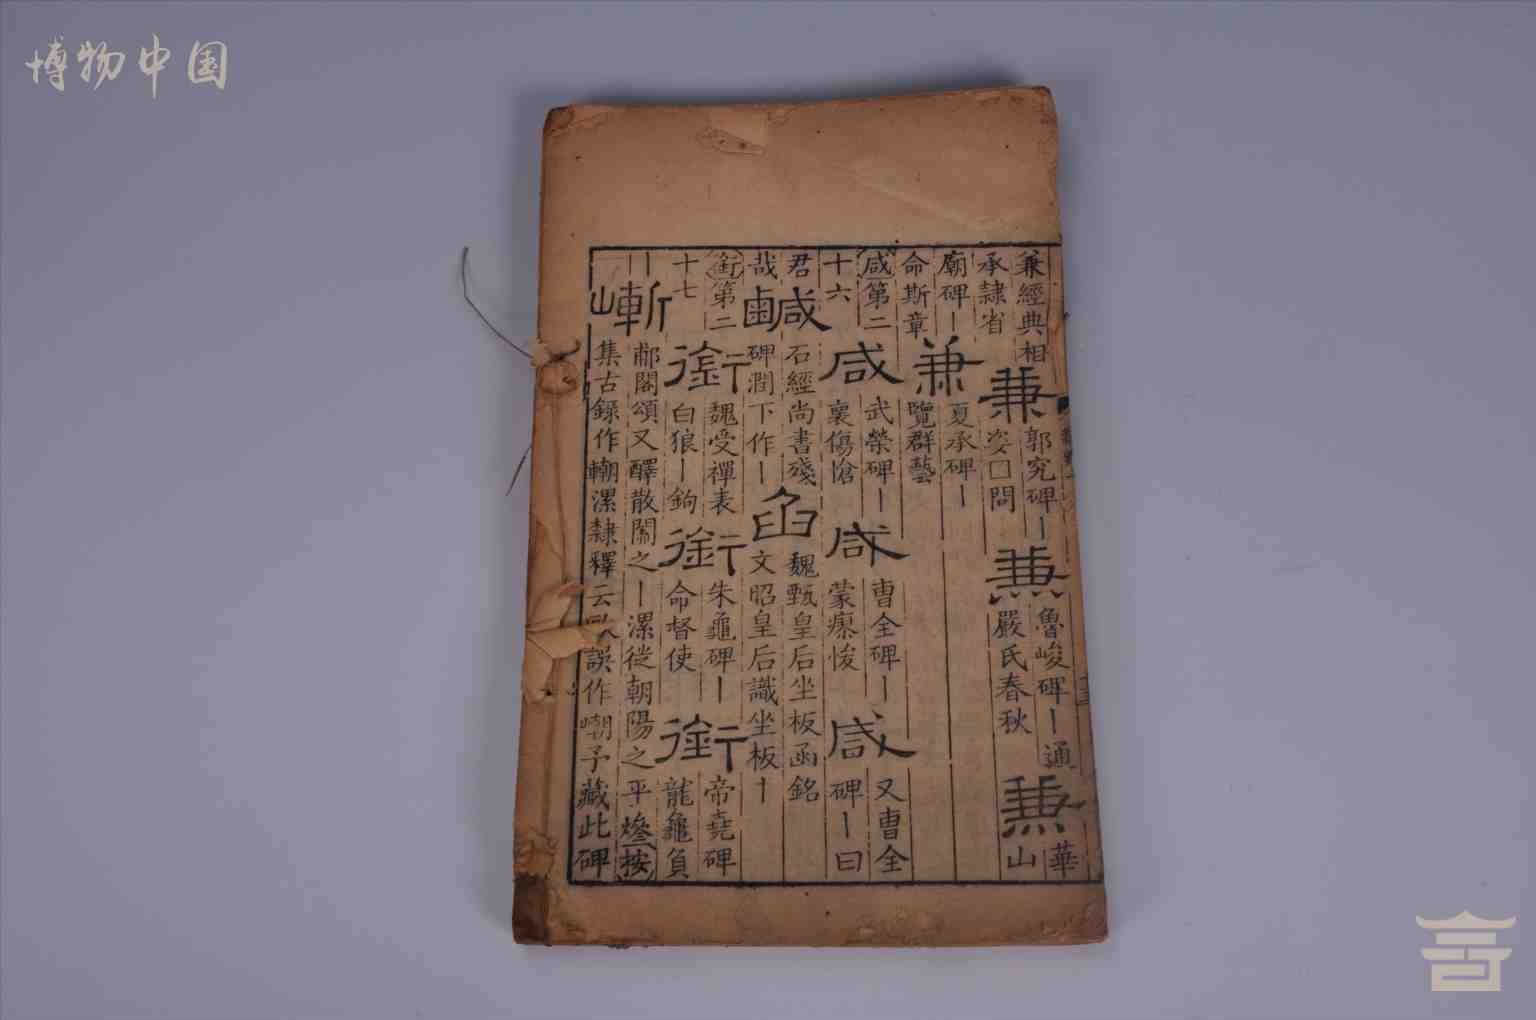 博物中国
兼經典相
承隸省
兼
郭究碑丨
姿□問
兼
魯峻碑丨通
嚴氏春秋
兼
華
山
廟碑丨
命斯章
兼
夏承碑丨
覽群藝
咸第二
十六
咸
武榮碑丨
裏傷愴
咸
曹全碑丨
蒙瘝悛
咸
又曹全
碑丨曰
君
哉
鹹
石經尚書殘
碑潤下作丨
臽
魏甄皇后坐板函銘
文昭皇后識坐板丨
銜第二
十七
銜
魏受禪表
白狼丨鉤
銜
朱龜碑丨
命督使
銜
帝堯碑
龍龜負
丨
嶃
郙閣頌又醳散關之丨漯從朝陽之平㷖按
集古錄作轍漯隸釋云歐誤作嘲予藏此碑